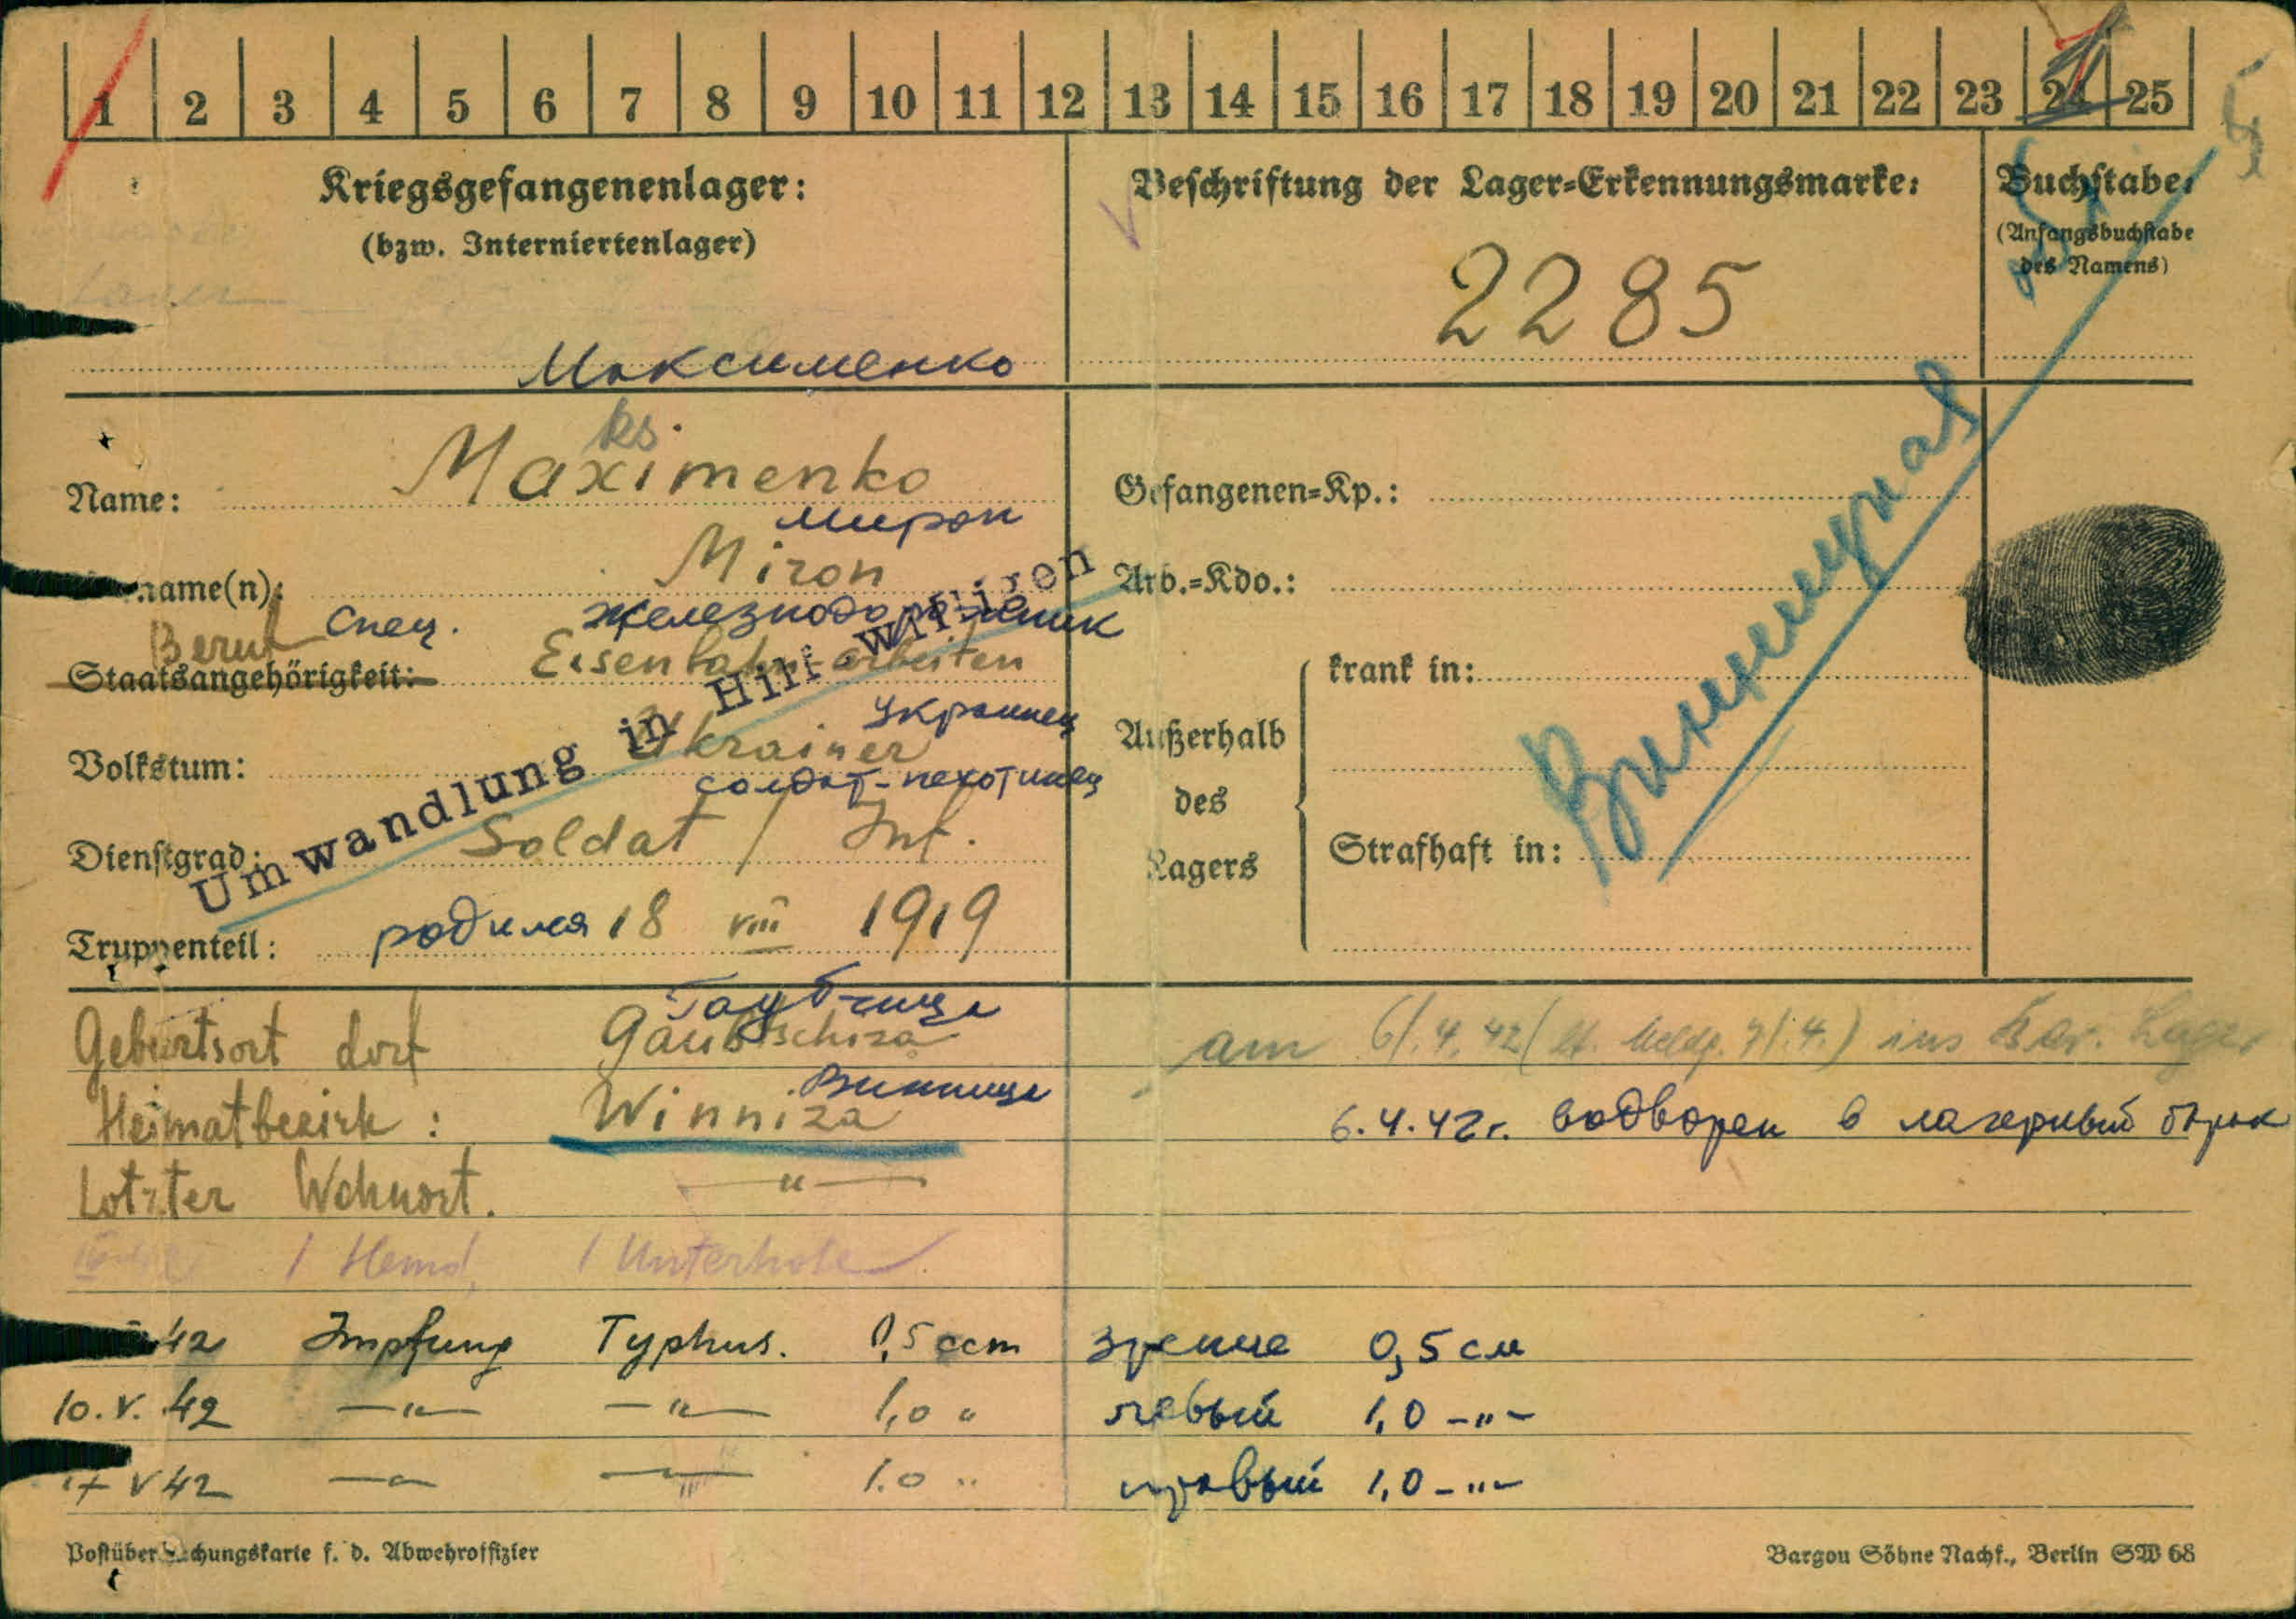 1 2 3 4 5 6 7 8 9 10 11 12 13 14 15 16 17 18 19 20 21 22 23 24 25
Kriegsgefangenenlager:
(bzw. Interniertenlager)
Максименко
Beschriftung der Lager-Erkennungsmarke:
2285
Buchstabe:
(Anfangsbuchstabe
des Namens)
ks.
Name: Maximenko
Мирон
name(n): Miron
Спец. железнодорожник
Beruf
Staatsangehörigkeit: Eisenbahn-arbeiten
Украинец
Volkstum: Ukrainer
солдат-пехотинец
Dienstgrad: Soldat / Inf.
Truppenteil: родился 18 VIII 1919
Umwandlung in Hilfswilligen
Gefangenen-Kp.:
Arb.-Kdo.:
Außerhalb
des
Lagers
krank in:
Strafhaft in:
Винницкая
Гаубчица
Geburtsort dorf Gaubtschiza
Винница
Heimatbezirk: Winniza
Lotzter Wohnort. —"—
1 Hemd, 1 Unterhose
42 Impfung Typhus. 0,5 ccm
10. V. 42 —"— —"— 1,0 "
17 V 42 —"— —"— 1.0 "
am 6/.4.42 ( Meldg. 7/.4.) ins Lager
6.4.42г. водворен в лагерный барак
зрение 0,5 см
левый 1,0 -"-
правый 1,0 -"-
Postüber chungskarte f. d. Abwehroffizier
Bargou Söhne Nachf., Berlin SW 68